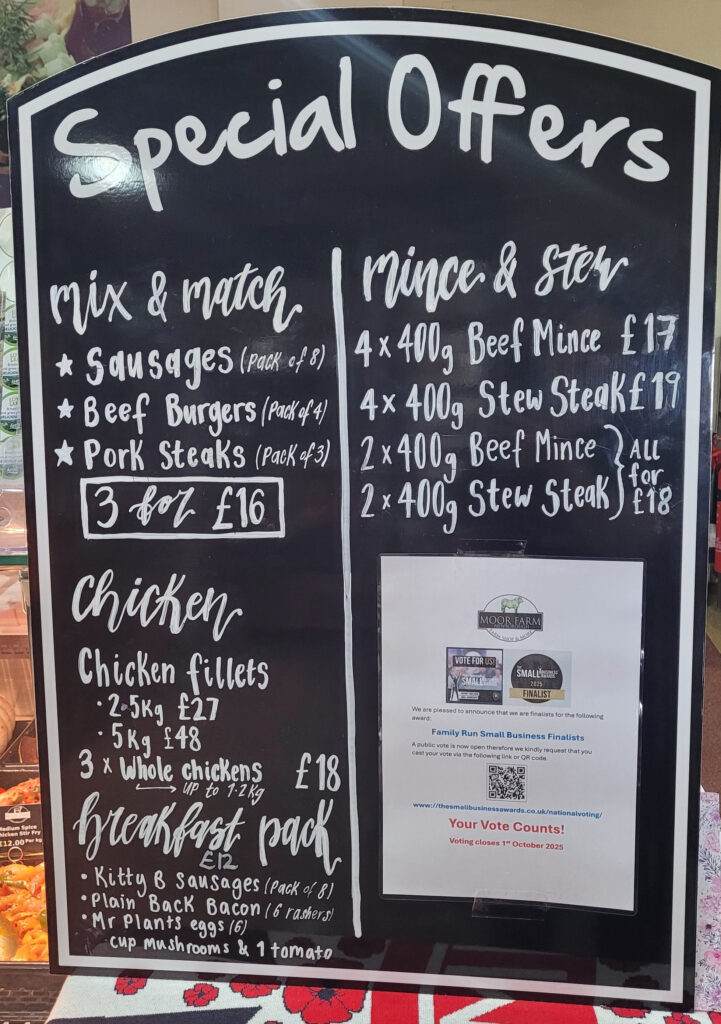 Special Offers
mix & match
★ Sausages (Pack of 8)
★ Beef Burgers (Pack of 4)
★ Pork Steaks (Pack of 3)
3 for £16
Chicken
Chicken fillets
• 2.5Kg £27
• 5Kg £48
3 x Whole chickens £18
UP to 1.2Kg
breakfast pack
£12
• Kitty B Sausages (Pack of 8)
• Plain Back Bacon (6 rashers)
• Mr Plants eggs (6)
cup mushrooms & 1 tomato
mince & stew
4 x 400g Beef Mince £17
4 x 400g Stew Steak £19
2 x 400g Beef Mince
2 x 400g Stew Steak
ALL
for
£18
MOOR FARM
NEWBOROUGH
FARM SHOP & MORE
VOTE FOR US!
SMALL
THE
SMALL BUSINESS
AWARDS
2025
FINALIST
We are pleased to announce that we are finalists for the following
award:
Family Run Small Business Finalists
A public vote is now open therefore we kindly request that you
cast your vote via the following link or QR code.
https://thesmallbusinessawards.co.uk/nationalvoting/
Your Vote Counts!
Voting closes 1st October 2025
Medium Spice
Chicken Stir Fry
£12.00 Per kg